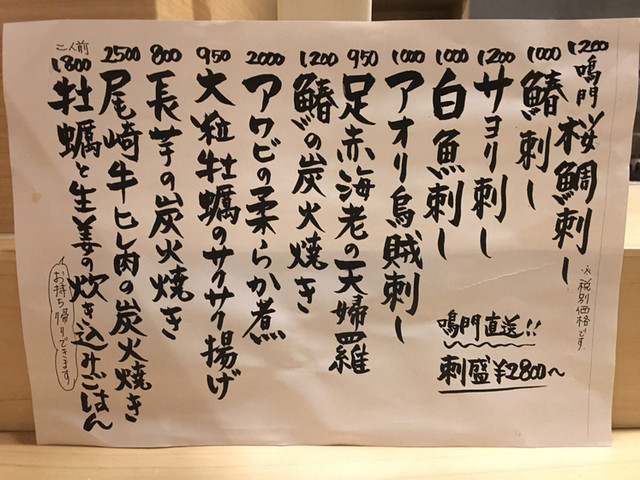 1200 鳴門桜鯛刺し
1000 鰆刺し
1200 サヨリ刺し
1000 白魚刺し
1000 アオリ烏賊刺し
950 足赤海老の天婦羅
1200 鰆の炭火焼き
2000 アワビの柔らか煮
950 大粒牡蠣のサイサイ揚げ
800 長芋の炭火焼き
2500 尾崎牛ヒレ肉の炭火焼き
二人前
1800 牡蠣と生姜の炊き込みごはん
お持ち帰りできます
※税別価格です
鳴門直送!!
刺盛¥2800〜